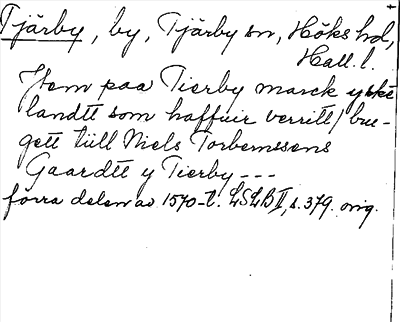 Tjärby, by, Tjärby sn, Höks hd,
Hall. l.
Jtem paa Tierby marck
landtt som haffuir verritt / bru-
gett tiill Niels Torbernssens
Gaardtt y Tierby ---
förra delen av 1570-t. LSLB II, s. 379. orig.